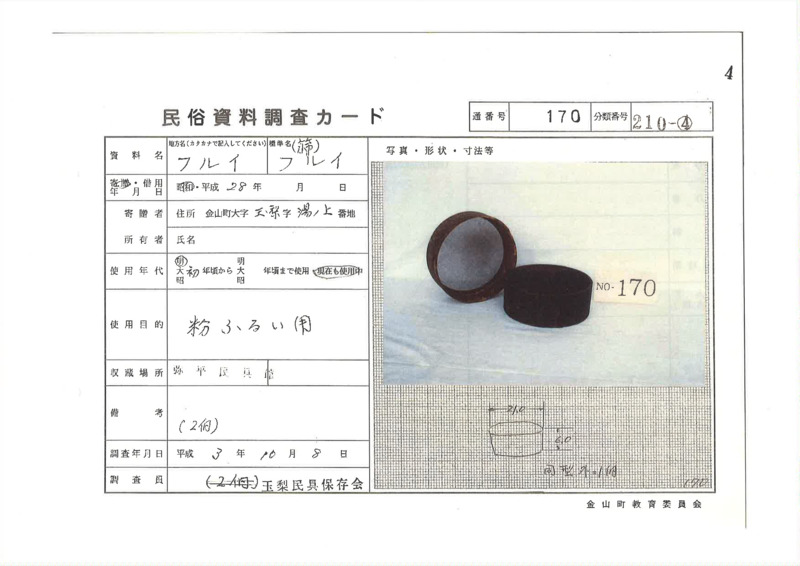 4
民俗資料調査カード
通番号 170 分類番号 210-④
資料名 地方名(カタカナで記入してください) フルイ 標準名(篩) フルイ
写真・形状・寸法等
寄贈・借用年月日 昭和・平成 28年 月 日
寄贈者 住所 金山町大字 玉梨 字 湯ノ上 番地
所有者 氏名
使用年代 明大昭 初 年頃から 明大昭 年頃まで使用・現在も使用中
使用目的 粉ふるい用
収蔵場所 弥平民具館
備考 (2個)
調査年月日 平成 3年 10月 8日
調査員 (2個) 玉梨民具保存会
NO-170
21.0
6.0
同型外1個
170
金山町教育委員会